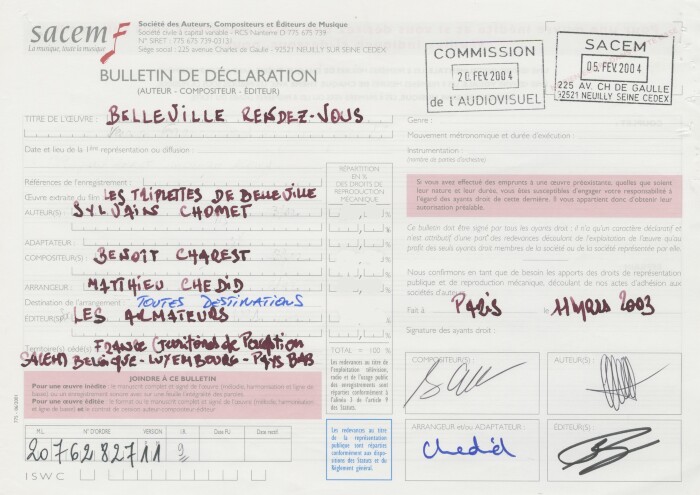 sacem
La musique, toute la musique
Société des Auteurs, Compositeurs et Éditeurs de Musique
Société civile à capital variable - RCS Nanterre D 775 675 739
N° SIRET : 775 675 739-03131
Siège social : 225 avenue Charles de Gaulle - 92521 NEUILLY SUR SEINE CEDEX
BULLETIN DE DÉCLARATION
(AUTEUR - COMPOSITEUR - ÉDITEUR)
COMMISSION
20 FEV. 2004
de l'AUDIOVISUEL
SACEM
05. FEV. 2004
225 AV. CH DE GAULLE
92521 NEUILLY SEINE CEDEX
TITRE DE L'ŒUVRE : BELLEVILLE RENDEZ-VOUS
Date et lieu de la 1ère représentation ou diffusion :
Références de l'enregistrement :
Œuvre extraite du film LES TRIPLETTES DE BELLEVILLE
AUTEUR(S) : SYLVAIN CHOMET
ADAPTATEUR :
COMPOSITEUR(S) : BENOÎT CHAREST
ARRANGEUR : MATHIEU CHEDID
Destination de l'arrangement : TOUTES DESTINATIONS
ÉDITEUR(S) : LES ARMATEURS
Territoire(s) cédé(s) : FRANCE (territoires de Perception
SACEM) BELGIQUE - LUXEMBOURG - PAYS BAS
RÉPARTITION
EN %
DES DROITS DE
REPRODUCTION
MÉCANIQUE
TOTAL = 100 %
Les redevances au titre de
l'exploitation télévision,
radio et de l'usage public
des enregistrements, sont
réparties conformément
à l'alinéa 3 de l'article 9
des Statuts.
JOINDRE À CE BULLETIN
Pour une œuvre inédite : le manuscrit complet et signé de l'œuvre (mélodie, harmonisation et ligne de base)
ou un enregistrement sonore avec sur une feuille l'intégralité des paroles.
Pour une œuvre éditée : le format ou le manuscrit complet et signé de l'œuvre (mélodie, harmonisation et
ligne de base) et le contrat de cession auteur-compositeur éditeur
M.L. N° D'ORDRE VERSION I.R. Date P.I. Date motif
20762827 11 2
ISWC
Les redevances au titre
de la représentation
publique sont réparties
conformément aux dispo-
sitions des Statuts et du
Règlement général.
Genre :
Mouvement métronomique et durée d'exécution :
Instrumentation :
(nombre de parties d'orchestre)
Si vous avez effectué des emprunts à une œuvre préexistante, quelles que soient
leur nature et leur durée, vous êtes susceptibles d'engager votre responsabilité à
l'égard des ayants droit de cette dernière. Il vous appartient donc d'obtenir leur
autorisation préalable.
Ce bulletin doit être signé par tous les ayants droit : il n'a qu'un caractère déclaratif et
n'est attributif d'une part des redevances découlant de l'exploitation de l'œuvre qu'au
profit des seuls ayants droit membres de la société ou de la société représentée par elle.
Nous confirmons en tant que de besoin les apports des droits de représentation
publique et de reproduction mécanique, découlant de nos actes d'adhésion aux
sociétés d'auteurs.
Fait à PARIS le 11 MARS 2003
Signature des ayants droit :
COMPOSITEUR(S) :
AUTEUR(S) :
ARRANGEUR et/ou ADAPTATEUR :
Chedid
ÉDITEUR(S) :